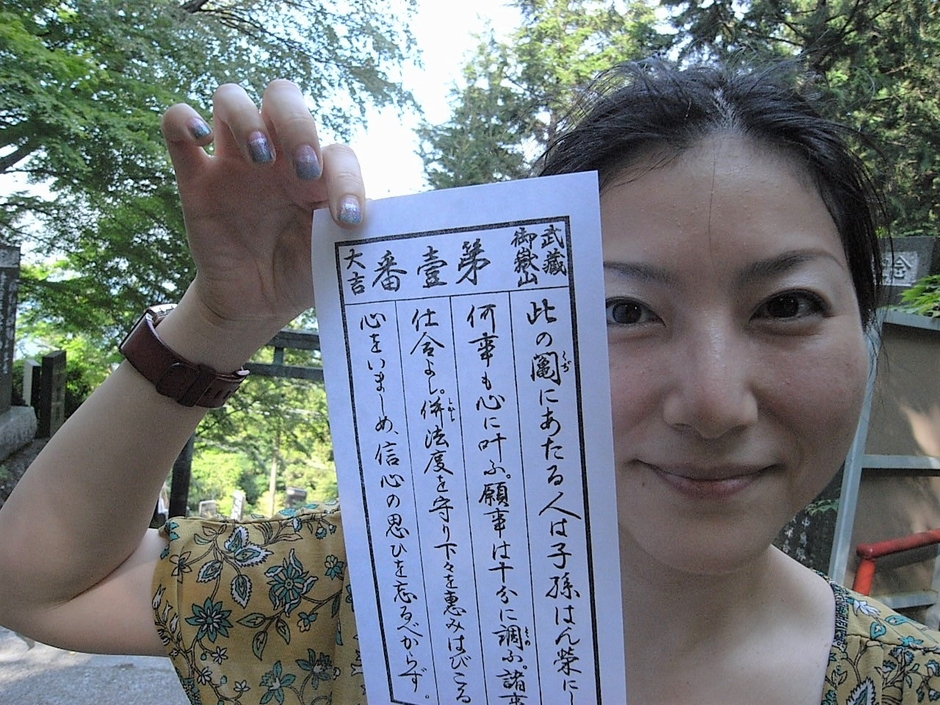 武藏
御嶽山
第壹番
大吉
此の鬮にあたる人は子孫はん榮にし
何事も心に叶ふ。願事は十分に調ふ諸事
仕合よし。併法度を守り下々を惠みはびこる
心をいましめ、信心の思ひを忘るべからず。